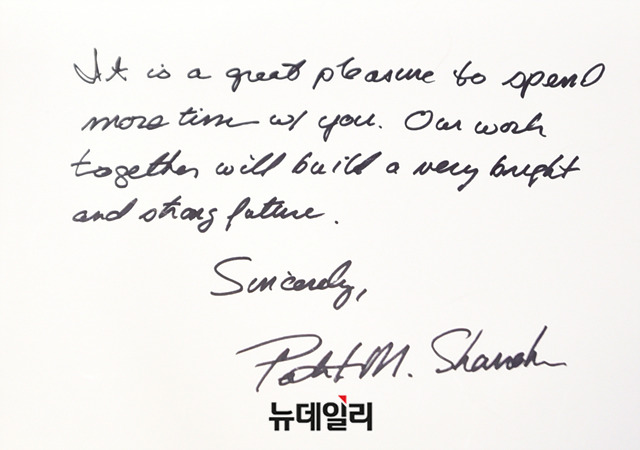 It is a great pleasure to spend
more time w/ you. Our work
together will build a very bright
and strong future.
Sincerely,
M. Shanah
뉴데일리